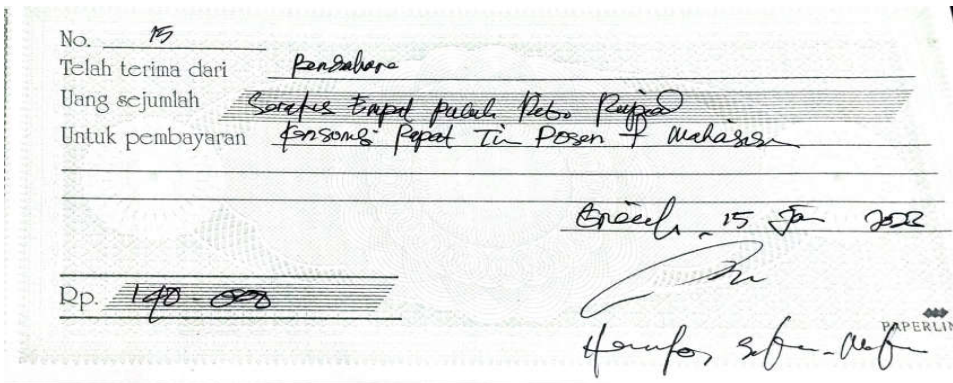 No. 15
Telah terima dari Bendahara
Uang sejumlah Seratus Empat puluh Ribu Rupiah
Untuk pembayaran Konsumsi Rapat Tim Dosen + Mahasiswa
15 Jan
Rp. 140.000
PAPERLIN